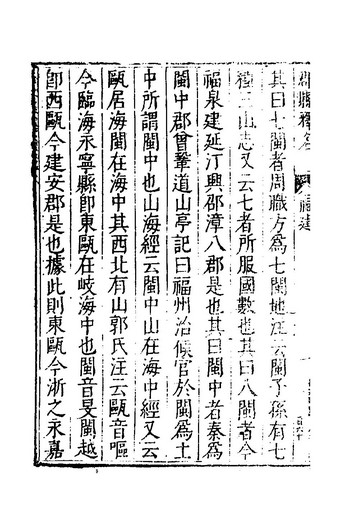 郡縣釋名
福建
其曰七閩者周職方爲七閩地注云閩子孫有七
種三山志又云七者所服國數也其曰八閩者今
福泉建延汀興邵漳八郡是也其曰閩中者秦爲
閩中郡曾鞏道山亭記曰福州治候官於閩爲土
中所謂閩中也山海經云閩中山在海中經又云
甌居海閩在海中其西北有山郭氏注云甌音嘔
今臨海永寧縣卽東甌在岐海中也閩音旻閩越
卽西甌今建安郡是也據此則東甌今浙之永嘉